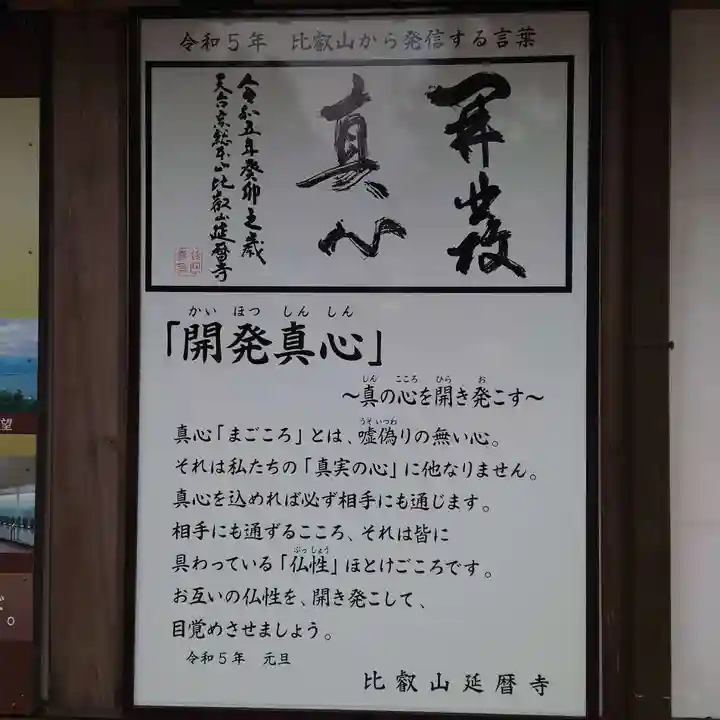 令和５年　比叡山から発信する言葉
開發
真心
令和五年癸卯之歳
天台宗総本山比叡山延暦寺
かい　ほつ　しん　しん
「開発真心」
しん　こころ　ひら　お
～真の心を開き発こす～
うそ いつわ
真心「まごころ」とは、嘘偽りの無い心。
それは私たちの「真実の心」に他なりません。
真心を込めれば必ず相手にも通じます。
相手にも通ずるこころ、それは皆に
ぶっしょう
具わっている「仏性」ほとけごころです。
お互いの仏性を、開き発こして、
目覚めさせましょう。
令和５年　元旦
比叡山延暦寺
望
。